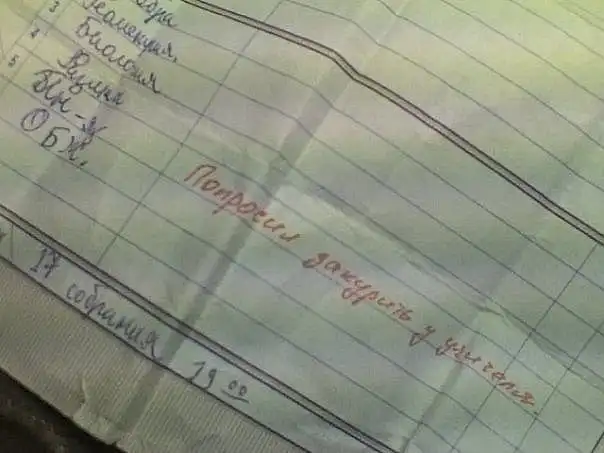 3
Геометрия
4 Биология
5 Физика
Ин-яз
ОБЖ.
Попросил закурить у учителя.
17 собрания 19 00